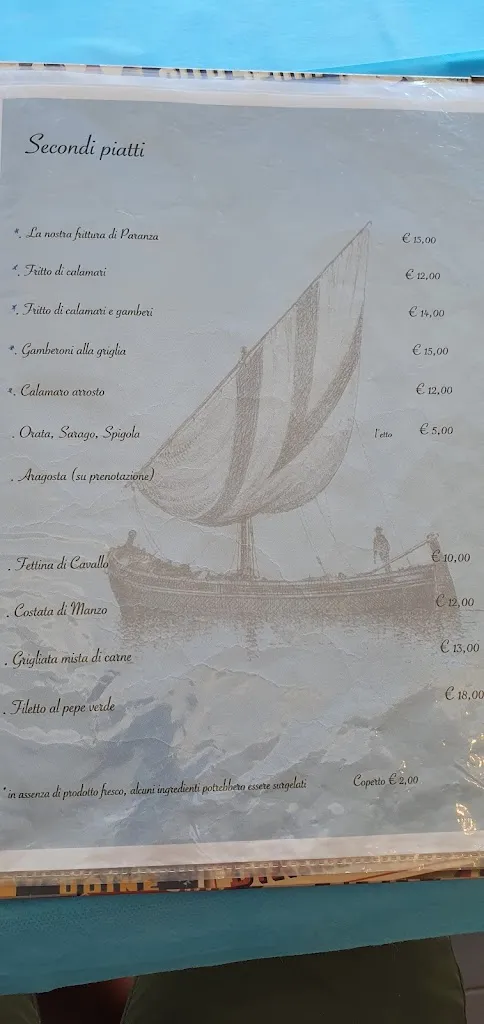 Secondi piatti
*. La nostra frittura di Paranza € 15,00
*. Fritto di calamari € 12,00
*. Fritto di calamari e gamberi € 14,00
*. Gamberoni alla griglia € 15,00
*. Calamaro arrosto € 12,00
. Orata, Sarago, Spigola l'etto € 5,00
. Aragosta (su prenotazione)
. Fettina di Cavallo € 10,00
. Costata di Manzo € 12,00
. Grigliata mista di carne € 13,00
. Filetto al pepe verde € 18,00
* in assenza di prodotto fresco, alcuni ingredienti potrebbero essere surgelati Coperto € 2,00